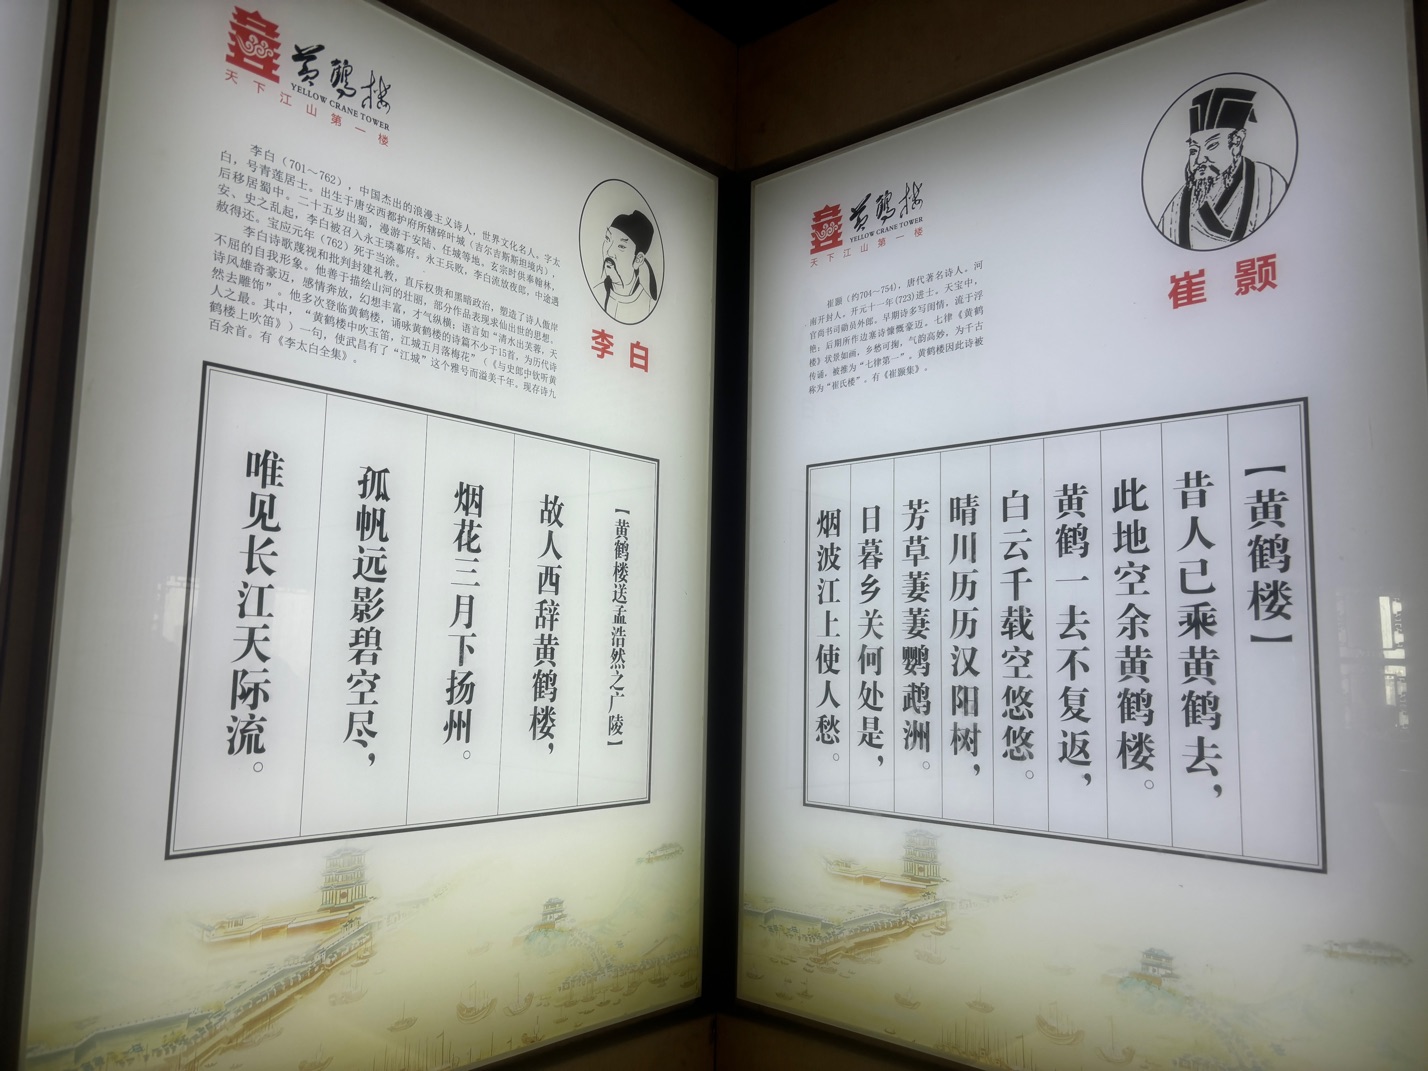 黄鹤楼
YELLOW CRANE TOWER
天下江山第一楼
李白（701～762），中国杰出的浪漫主义诗人，世界文化名人。字太
白，号青莲居士。出生于唐安西都护府所辖碎叶城（吉尔吉斯斯坦境内），
后移居蜀中。二十五岁出蜀，漫游于安陆、任城等地。玄宗时供奉翰林，
安、史之乱起，李白被召入永王璘幕府。永王兵败，李白流放夜郎，中途遇
赦得还。宝应元年（762）死于当涂。
李白诗歌蔑视和批判封建礼教，直斥权贵和黑暗政治，塑造了诗人傲岸
不屈的自我形象。他善于描绘山河的壮丽，部分作品表现求仙出世的思想，
诗风雄奇豪迈，感情奔放，幻想丰富，才气纵横；语言如“清水出芙蓉，天
然去雕饰”。他多次登临黄鹤楼，诵咏黄鹤楼的诗篇不少于15首，为历代诗
人之最。其中，“黄鹤楼中吹玉笛，江城五月落梅花”（《与史郎中钦听黄
鹤楼上吹笛》）一句，使武昌有了“江城”这个雅号而溢美千年。现存诗九
百余首。有《李太白全集》。
李白
【黄鹤楼送孟浩然之广陵】
故人西辞黄鹤楼，
烟花三月下扬州。
孤帆远影碧空尽，
唯见长江天际流。
黄鹤楼
YELLOW CRANE TOWER
天下江山第一楼
崔颢（约704～754），唐代著名诗人。河
南开封人。开元十一年(723)进士。天宝中，
官尚书司勋员外郎。早期诗多写闺情，流于浮
艳；后期所作边塞诗慷慨豪迈。七律《黄鹤
楼》状景如画，乡愁可掬，气韵高妙，为千古
传诵，被推为“七律第一”，黄鹤楼因此诗被
称为“崔氏楼”。有《崔颢集》。
崔颢
【黄鹤楼】
昔人已乘黄鹤去，
此地空余黄鹤楼。
黄鹤一去不复返，
白云千载空悠悠。
晴川历历汉阳树，
芳草萋萋鹦鹉洲。
日暮乡关何处是，
烟波江上使人愁。